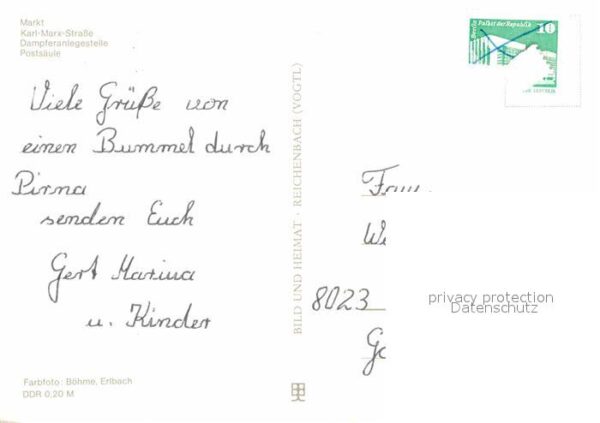 Markt
Karl-Marx-Straße
Dampferanlegestelle
Postsäule
Berlin Palast der Republik 10
Viele Grüße von
einen Bummel durch
Pirna
senden Euch
Gert Marina
u. Kinder
Farbfoto: Böhme, Erlbach
DDR 0,20 M
BILD UND HEIMAT · REICHENBACH (VOGTL)
8023
privacy protection
Datenschutz